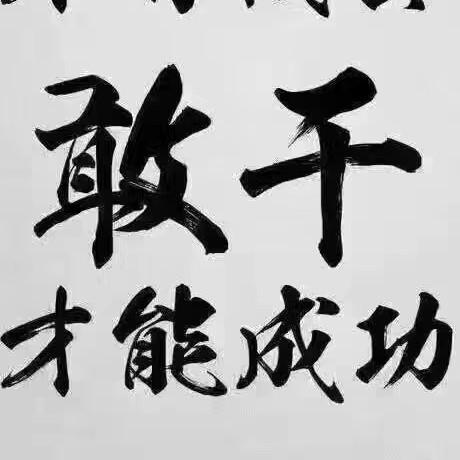 敢干
才能成功